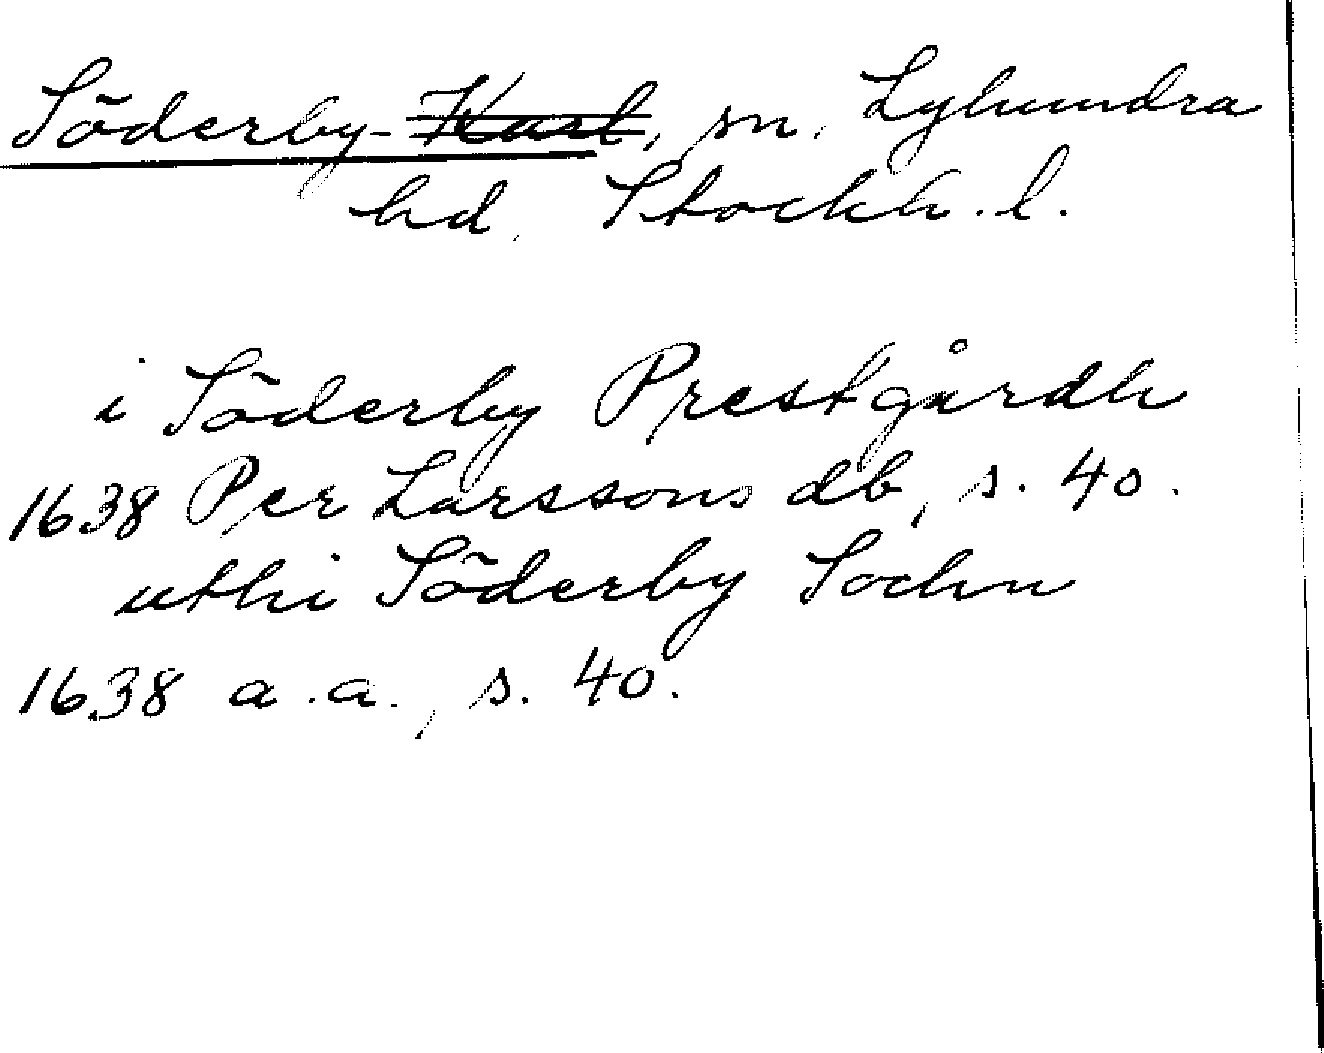 Söderby-Karl, sn, Lyhundra
hd, Stockh. l.
i Söderby Prestgårdh
1638 Per Larssons db, s. 40.
uthi Söderby Sochn
1638 a.a., s. 40.